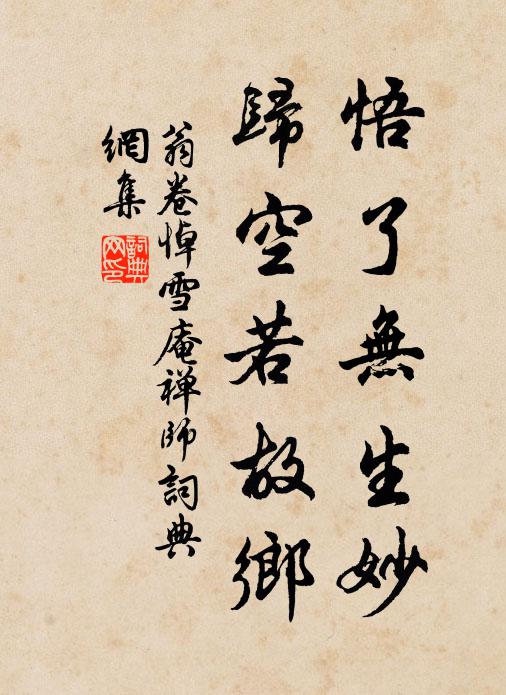 悟了無生妙
歸空若故鄉
翁卷悼雪庵禅師詞典
網集
詞典
网印